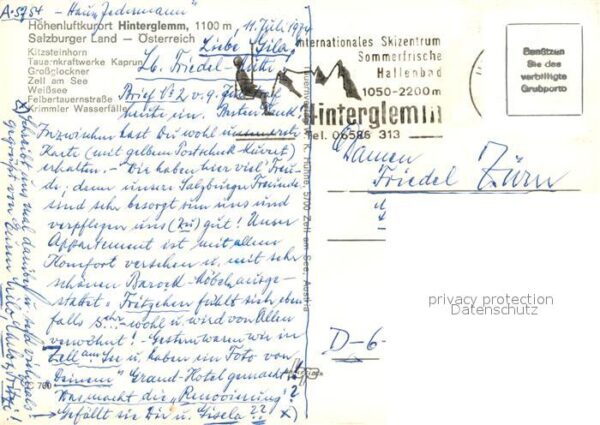 A-5754 - Haus "Jedermann"
Höhenluftkurort Hinterglemm, 1100 m, 11. Juli 1974
Salzburger Land — Österreich
Kitzsteinhorn
Tauernkraftwerke Kaprun
Großglockner
Zell am See
Weißsee
Felbertauernstraße
Krimmler Wasserfälle
Liebe Gila,
Lb. Friedel-
Brief No 2 v. 9.
heute ein. Besten Dank!
Inzwischen hast Du wohl unsere
Karte (mit gelbem Postscheck-Kuvert)
erhalten. - Wir haben hier viel Freu-
de, denn unsere Salzburger Freunde
sind sehr besorgt um uns und
verpflegen uns (zu) gut! Unser
Appartement ist mit allem
Komfort versehen u. mit sehr
schönen Barock-Möbeln ausge-
stattet. Fritzchen fühlt sich eben-
falls sehr wohl u. wird von Allen
verwöhnt! Gestern waren wir in
Zell am See u. haben ein Foto von
"Deinem" Grand-Hotel gemacht!
Was macht die "Renovierung"?
Gefällt sie Dir u. Gisela?? x)
x) Schreibt uns mal darüber u. seid vielmals
gegrüßt von Euren
Internationales Skizentrum
Sommerfrische
Hallenbad
1050-2200 m
Hinterglemm
Tel. 06586 313
Benützen
Sie das
verbilligte
Grußporto
Damen
Friedel Zürn
D-6
privacy protection
Datenschutz
760